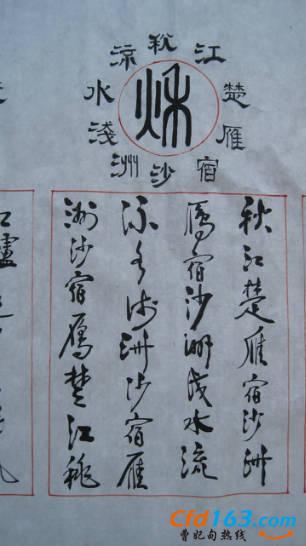 秋江楚雁宿沙洲淺水流
秋
秋江楚雁宿沙洲
鴈宿沙洲浅水流
流水浅洲沙宿雁
洲沙宿鴈楚江秋
Cfd163.com
曹妃甸热线